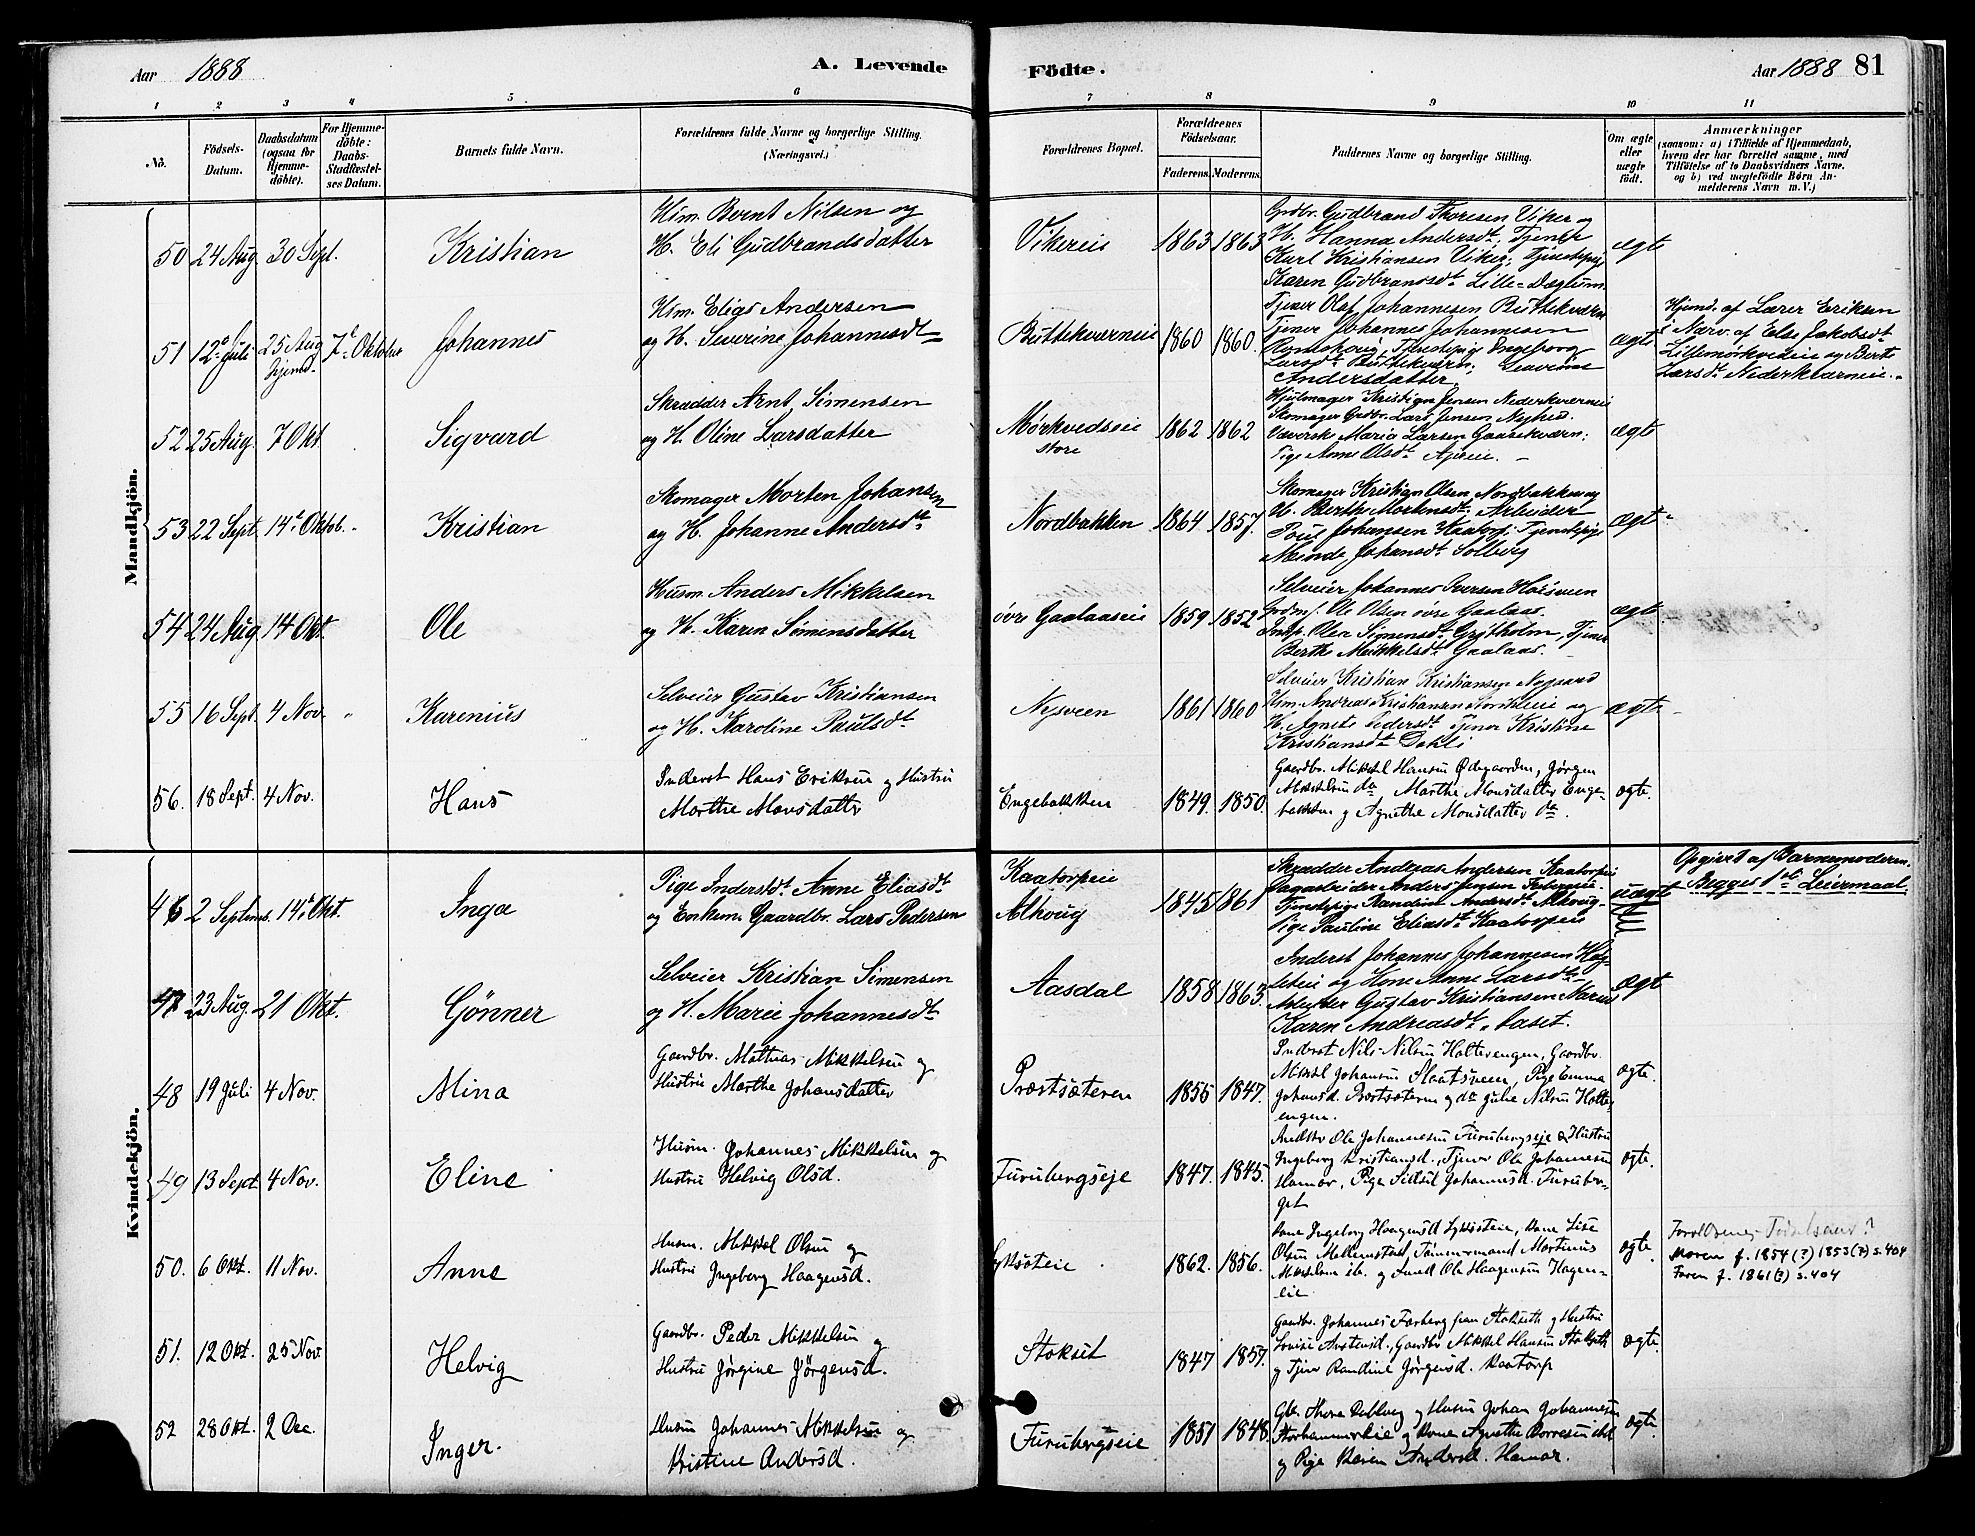 Aar 1888
A. Levende
Födte.
Aar 1888 81
1 2 3 4 5 6 7 8 9 10 11
No.
Födsels-
Datum.
Daabsdatum
(ogsaa for
Hjemme-
döbte).
For Hjemme-
döbte:
Daabs-
Stadfæstel-
ses Datum.
Barnets fulde Navn.
Forældrenes fulde Navne og borgerlige Stilling.
(Næringsvei.)
Forældrenes Bopæl.
Forældrenes
Födselsaar.
Faderens. Moderens.
Faddernes Navne og borgerlige Stilling.
Om ægte
eller
uægte
födt.
Anmærkninger
(saasom: a) i Tilfælde af Hjemmedaab,
hvem der har forrettet samme, med
Tilföielse af to Daabsvidners Navne.
og b) ved uægtefödte Börn An-
melderens Navn m. V.)
Mandkjön.
50 24 Aug. 30 Sept. Kristian
Hsm. Bernt Nilsen og
H. Eli Gudbrandsdatter
Vikereie 1863 1863
Grdbr. Gudbrand Thoresen Viker og
H. Hanna Andersdt, Tjener
Karl Kristiansen Viker, Tjenstepig
Karen Gudbrandsdt Lille-
ægte
51 12te Juli 25 Aug hjemd. 7de Oktober Johannes
Hsm. Elias Andersen
og H. Severine Johannesdt
Buttekverneie 1860 1860.
Tjener Olaf Johannesen Buttekværn
Tjener Johannes Johannesen
Tjenstepig Ingeborg
Larsdt Buttekværn; Severine
Andersdatter.
ægte
Hjemd. af Lærer Eriksen
i Nærv. af Else Jakobsdt
Lillemørkvedeie og Berte
Larsdt Nederkværneie.
52 25 Aug. 7 Okt Sigvard
Skrædder Arnt Simensen
og H. Oline Larsdatter
Mørkvedseie
store
1862 1862
Hjulmager Kristian Jensen Nederkværneie
Skomager Grdbr. Lars Jensen Nyhed.
Væverske Maria Larsen Gaasekværn;
Pige Anne Olsdt
ægte
53 22 Sept. 14de Oktob. " Kristian
Skomager Morten Johansen
og H. Johanne Andersdt
Nordbakken 1864 1857.
Skomager Kristian Olsen Nordbakken og
H. Berthe Mortensdt; Arbeider
Johansen Kaatorp; Tjenstepige
Johansdt Solberg
ægte
54 24 Aug 14 Okt. Ole
Husm. Anders Mikkelsen
og H. Karen Simensdatter
övre Gaalaaseie 1859 1852
Selveier Johannes Iversen Höisveen
Grdmf. Ole Olsen övre Gaalaas.
Simensdt Grötholm, Tjener
Berthe Mikkelsdt Gaalaas.
ægte
55 16 Sept. 4 Nov. " Karenius
Selveier Gustav Kristiansen
og H. Karoline Paulsdt
Nysveen 1861 1860
Selveier Kristian Kristiansen Nygaard
Hsm. Andreas Kristiansen og
H. Agnete Pedersdt Tjener Kristine
Kristiansdt Dahli
ægte
56. 18 Sept. 4 Nov. Hans
Inderst Hans Eriksen og Hustru
Marthe Monsdatter
Engebakken 1849. 1850.
Gaardbr. Mikkel Hansen Ødegaarden, Jørgen
Mikkelsen do Marthe Monsdatter Enge-
bakken og Agnethe Monsdatter do.
ægte.
Kvindekjön.
46 2 Septemb. 14de Okt. Inga
Pige Inderstdt Anne Eliasdt
og Enkem. Gaardbr. Lars Pedersen
Kaatorpeie
Alhoug
1845 1861
Skrædder Andreas Andersen Kaatorpeie
Anders Jensen
Tjenstepige Randine Andersdt Alhoug
Pige Pauline Eliasdt Kaatorpeie
uægte
Opgivet af Barnemoderen.
Begges 1ste Leiermaal.
47 23 Aug. 21 Okt. Gönner
Selveier Kristian Simensen
og H. Marie Johannesdt
Aasdal 1858 1863.
Inderst Johannes Johannesen
og Kone Anne Larsdt
Arbeider Gustav Kristiansen
Karen Andreasdt Aaset.
ægte
48 19 Juli 4 Nov. Mina
Gaardbr. Mathias Mikkelsen og
Hustru Marthe Johansdatter
Præstsæteren 1855 1847.
Inderst Nils Nilsen Holtevengen, Gaardbr.
Mikkel Johansen Slaatsveen, Pige Emma
Johansd. Præstsæteren og do Julie Nilsen Holte-
engen.
ægte.
49 13 Sept. 4 Nov. Eline
Husm. Johannes Mikkelsen og
Hustru Helvig Olsd.
Furubergseje 1847. 1845.
Ole Johannesen Furubergseje & Hustru
Ingeborg Kristiansd., Tjener Ole Johannesen
Hamar, Pige Sidsel Johannesd. Furuber-
get
ægte.
50. 6 Okt. 11 Nov. Anne
Husm. Mikkel Olsen og
Hustru Ingeborg Haagensd.
Lyksoteie 1862. 1856.
Kone Ingeborg Haagensd Lyksoteie, Kone Lise
Olsen Mellumstad, Tømmermand Martinus
Mikkelsen ib. og Ole Haagensen Hagen-
eie
ægte.
Forældrenes Fødselsaar?
Moren f. 1854 (?) 1853 (?) s. 404
Faren f. 1861 (?) s. 404
51. 12 Okt. 25 Nov Helvig
Gaardbr. Peder Mikkelsen og
Hustru Jørgine Jørgensd.
Stokset 1847 1857.
Gaardbr. Johannes Farberg fra Stokseth og Hustru
Lovise Gaardbr Mikkel Hansen Stokseth
og Tjener Randine Jørgensd. Kaatorp
ægte.
52 28 Okt. 2 Dec. Inger.
Husm Johannes Mikkelsen og
Kristine Andersd.
Furubergseie 1851 1848
Gbr. Thore Dølberg og Husm Johan Johannesen
Storhammerseie og Kone Agnethe Borresen ibd
og Pige Karen Andersd. Hamar.
ægte.